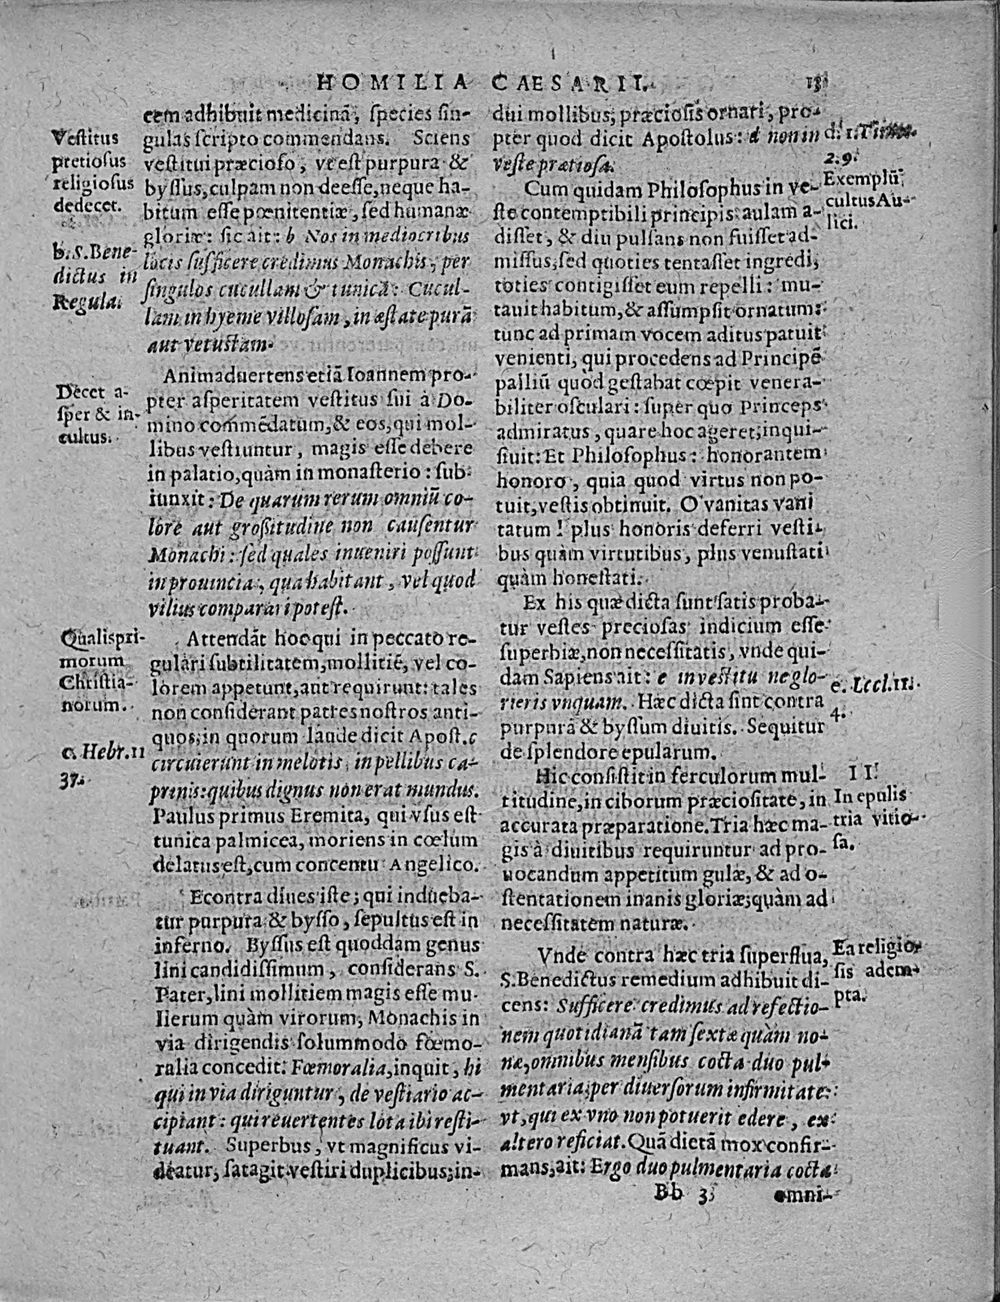 HOMILIA CAESARII. 13
cem adhibuit medicinā, species sin-
gulas scripto commendans. Sciens
vestitui præcioso, vt est purpura &
byssus, culpam non deesse, neque ha-
bitum esse pœnitentiæ, sed humanæ
gloriæ: sic ait: b Nos in mediocribus
locis sufficere credimus Monachis, per
singulos cucullam & tunicā: Cucul-
lam in hyeme villosam, in æstate purā
aut vetustam.
Animaduertens etiā Ioannem pro-
pter asperitatem vestitus sui à Do-
mino commēdatum, & eos, qui mol-
libus vestiuntur, magis esse debere
in palatio, quàm in monasterio: sub-
iunxit: De quarum rerum omniū co-
lore aut grossitudine non causentur
Monachi: sed quales inueniri possunt
in prouincia, qua habitant, vel quod
vilius comparari potest.
Attendāt hoc qui in peccato re-
gulari subtilitatem, mollitiē, vel co-
lorem appetunt, aut requirunt: tales
non considerant patres nostros anti-
quos, in quorum laude dicit Apost. c
circuierunt in melotis, in pellibus ca-
prinis: quibus dignus non erat mundus.
Paulus primus Eremita, qui vsus est
tunica palmicea, moriens in cœlum
delatus est, cum concentu Angelico.
Econtra diues iste; qui indueba-
tur purpura & bysso, sepultus est in
inferno. Byssus est quoddam genus
lini candidissimum, considerans S.
Pater, lini mollitiem magis esse mu-
lierum quàm virorum, Monachis in
via dirigendis solummodo fœmo-
ralia concedit: Fœmoralia, inquit, hi
qui in via diriguntur, de vestiario ac-
cipiant: qui reuertentes lota ibi resti-
tuant. Superbus, vt magnificus vi-
deatur, satagit vestiri duplicibus, in-
Vestitus
pretiosus
religiosus
dedecet.
b. S. Bene-
dictus in
Regula.
Decet a-
sper & in-
cultus.
Qualis pri-
morum
Christia-
norum.
c. Hebr. 11
37.
dui mollibus, præciosis ornari, pro-
pter quod dicit Apostolus: d non in
veste prætiosa.
Cum quidam Philosophus in ve-
ste contemptibili principis aulam a-
disset, & diu pulsans non fuisset ad-
missus, sed quoties tentasset ingredi,
toties contigisset eum repelli: mu-
tauit habitum, & assumpsit ornatum:
tunc ad primam vocem aditus patuit
venienti, qui procedens ad Principē
palliū quod gestabat cœpit venera-
biliter osculari: super quo Princeps
admiratus, quare hoc ageret, inqui-
siuit: Et Philosophus: honorantem
honoro, quia quod virtus non po-
tuit, vestis obtinuit. O vanitas vani
tatum! plus honoris deferri vesti-
bus quàm virtutibus, plus venustati
quàm honestati.
Ex his quæ dicta sunt satis proba-
tur vestes preciosas indicium esse
superbiæ, non necessitatis, vnde qui-
dam Sapiens ait: e in vestitu ne glo-
rieris vnquam. Hæc dicta sint contra
purpurā & byssum diuitis. Sequitur
de splendore epularum.
Hic consistit in ferculorum mul-
titudine, in ciborum præciositate, in
accurata præparatione. Tria hæc ma-
gis à diuitibus requiruntur ad pro-
uocandum appetitum gulæ, & ad o-
stentationem inanis gloriæ, quàm ad
necessitatem naturæ.
Vnde contra hæc tria superflua,
S. Benedictus remedium adhibuit di-
cens: Sufficere credimus ad refectio-
nem quotidianā tam sextæ quàm no-
næ, omnibus mensibus cocta duo pul-
mentaria, per diuersorum infirmitate:
vt, qui ex vno non potuerit edere, ex
altero reficiat. Quā dietā mox confir-
mans, ait: Ergo duo pulmentaria cocta
d. 1. Tim.
2. 9.
Exemplū
cultus Au-
lici.
e. Eccl. 11.
4.
II.
In epulis
tria vitio-
sa.
Ea religio-
sis adem-
pta.
Bb 3 omni-